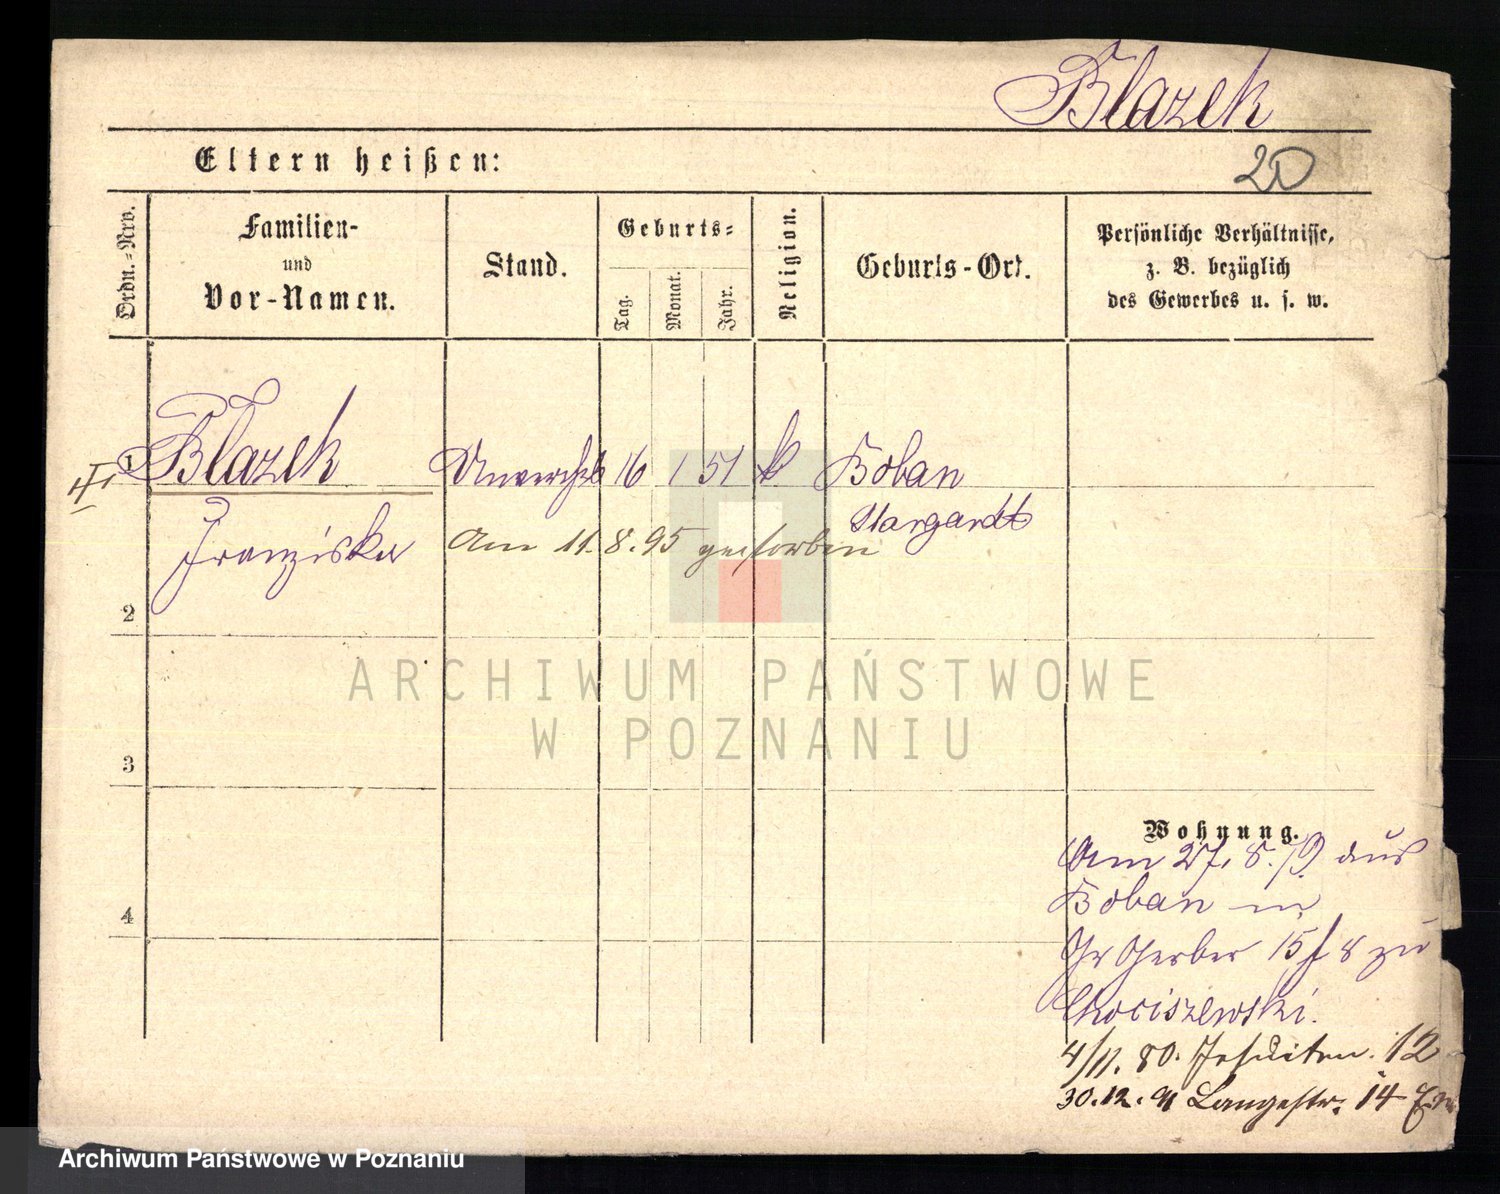 Blazek
20
Eltern heißen:
Ordn.-Nro.
Familien-
und
Vor-Namen.
Stand.
Geburts-
Tag.
Monat.
Jahr.
Religion.
Geburts-Ort.
Persönliche Verhältnisse,
z. B. bezüglich
des Gewerbes u. s. w.
1 Blazek 16 1 51 k Boban
Stargardt
Franziska Am 11. 8. 95 gestorben
2
3
Wohnung.
Am 27. 8. 79. aus
4
Boban in
Gr Gerber 15 f 8 zu
Chociszewski.
4/11. 80. Jesuiten. 12
30. 12. 91 Langestr. 14
ARCHIWUM PAŃSTWOWE
W POZNANIU
Archiwum Państwowe w Poznaniu